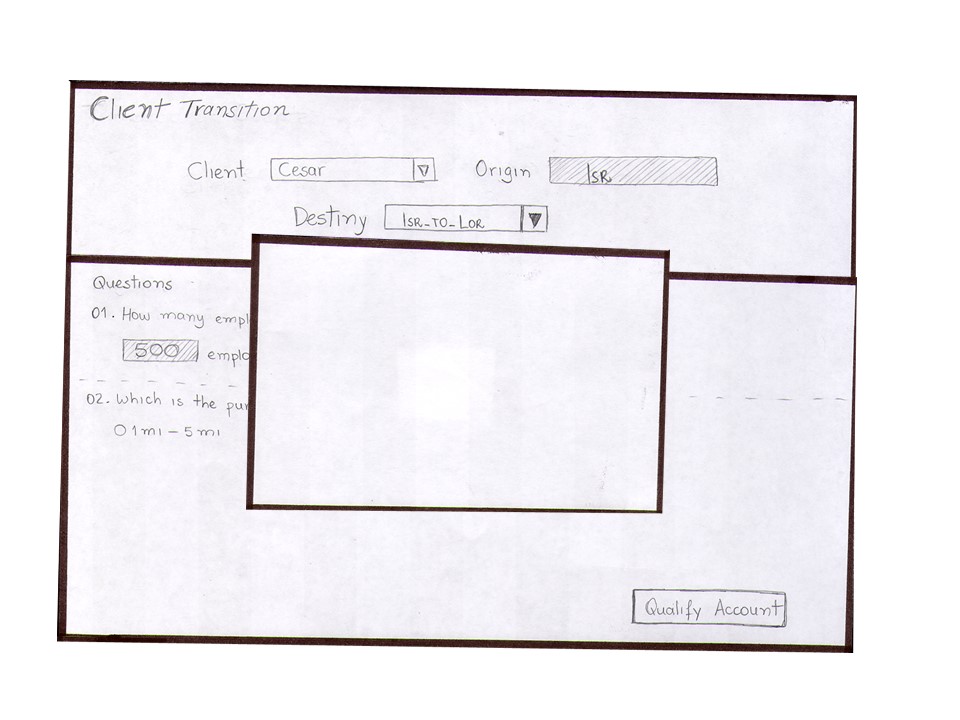 Client Transition
Client Cesar Origin ISR
Destiny ISR-TO-LOR
Questions
01. How many empl
500 emplo
02. Which is the pur
O 1mi - 5mi
Qualify Account